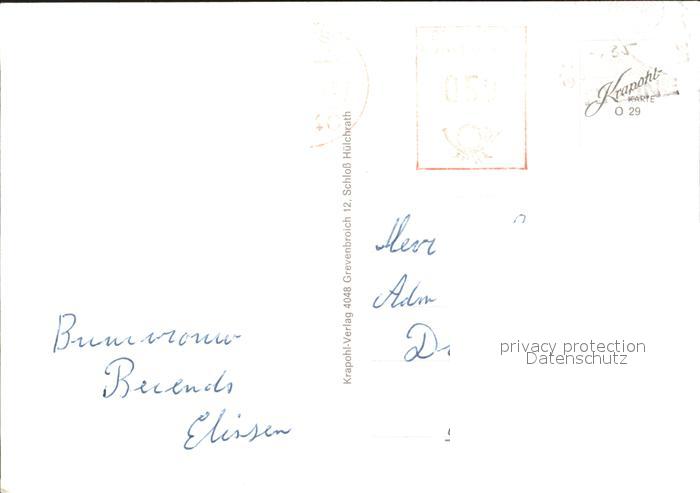 Krapohl-
KARTE
O 29
020
Krapohl-Verlag 4048 Grevenbroich 12, Schloß Hülchrath
Herr
Adm
D
privacy protection
Datenschutz
Berends
Elissen